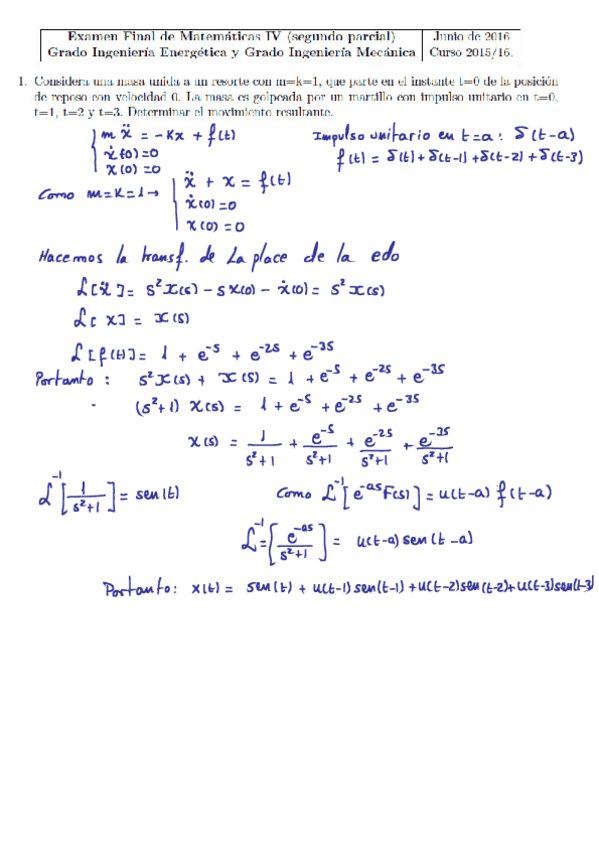 Examen Final de Matemáticas IV (segundo parcial) Junio de 2016
Grado Ingeniería Energética y Grado Ingeniería Mecánica Curso 2015/16.
1. Considera una masa unida a un resorte con m=k=1, que parte en el instante t=0 de la posición
de reposo con velocidad 0. La masa es golpeada por un martillo con impulso unitario en t=0,
t=1, t=2 y t=3. Determinar el movimiento resultante.
m ẍ = -Kx + f(t) Impulso unitario en t=a: δ(t-a)
ẋ(0)=0 f(t) = δ(t)+δ(t-1)+δ(t-2)+δ(t-3)
x(0)=0
Como m=K=1→ ẍ + x = f(t)
ẋ(0)=0
x(0)=0
Hacemos la transf. de Laplace de la edo
ℒ[ẍ]= s²X(s) - sX(0) - ẋ(0) = s²X(s)
ℒ[x] = X(s)
ℒ[f(t)] = 1 + e^-s + e^-2s + e^-3s
Por tanto: s²X(s) + X(s) = 1 + e^-s + e^-2s + e^-3s
(s²+1) X(s) = 1 + e^-s + e^-2s + e^-3s
X(s) = 1/(s²+1) + e^-s/(s²+1) + e^-2s/(s²+1) + e^-3s/(s²+1)
ℒ^-1[1/(s²+1)] = sen(t) Como ℒ^-1[e^-as F(s)] = u(t-a) f(t-a)
ℒ^-1=[e^-as/(s²+1)] = u(t-a) sen(t-a)
Por tanto: x(t) = sen(t) + u(t-1)sen(t-1)+u(t-2)sen(t-2)+u(t-3)sen(t-3)